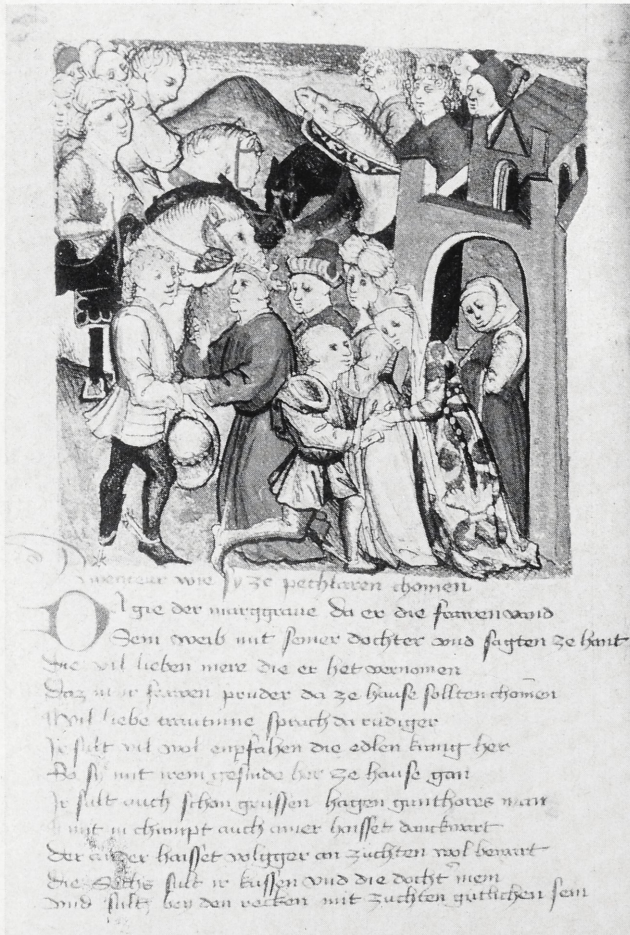 Awenteur wie sy ze pechlaren chomen
Do gie der marggraue da er die frawen vand
Sein weib mit seiner dochter vnd sagten ze hant
die vil lieben mere die er het vernomen
Daz ir frawen pruder da ze hause sollten chomen
Vil liebe trautinne sprach da rudiger
Ir sült vil wol enpfahen die edlen kunig her
So sy mit irem gesinde her ze hause gan
Ir sült auch schon grüssen hagen gunthores man
mit in chumpt auch ainer haisset danckwart
der ander haisset volgger an zuchten wol bewart
die Sechs sült ir küssen vnd die docht mein
vnd sült bey den recken mit zuchten gütlichen sein